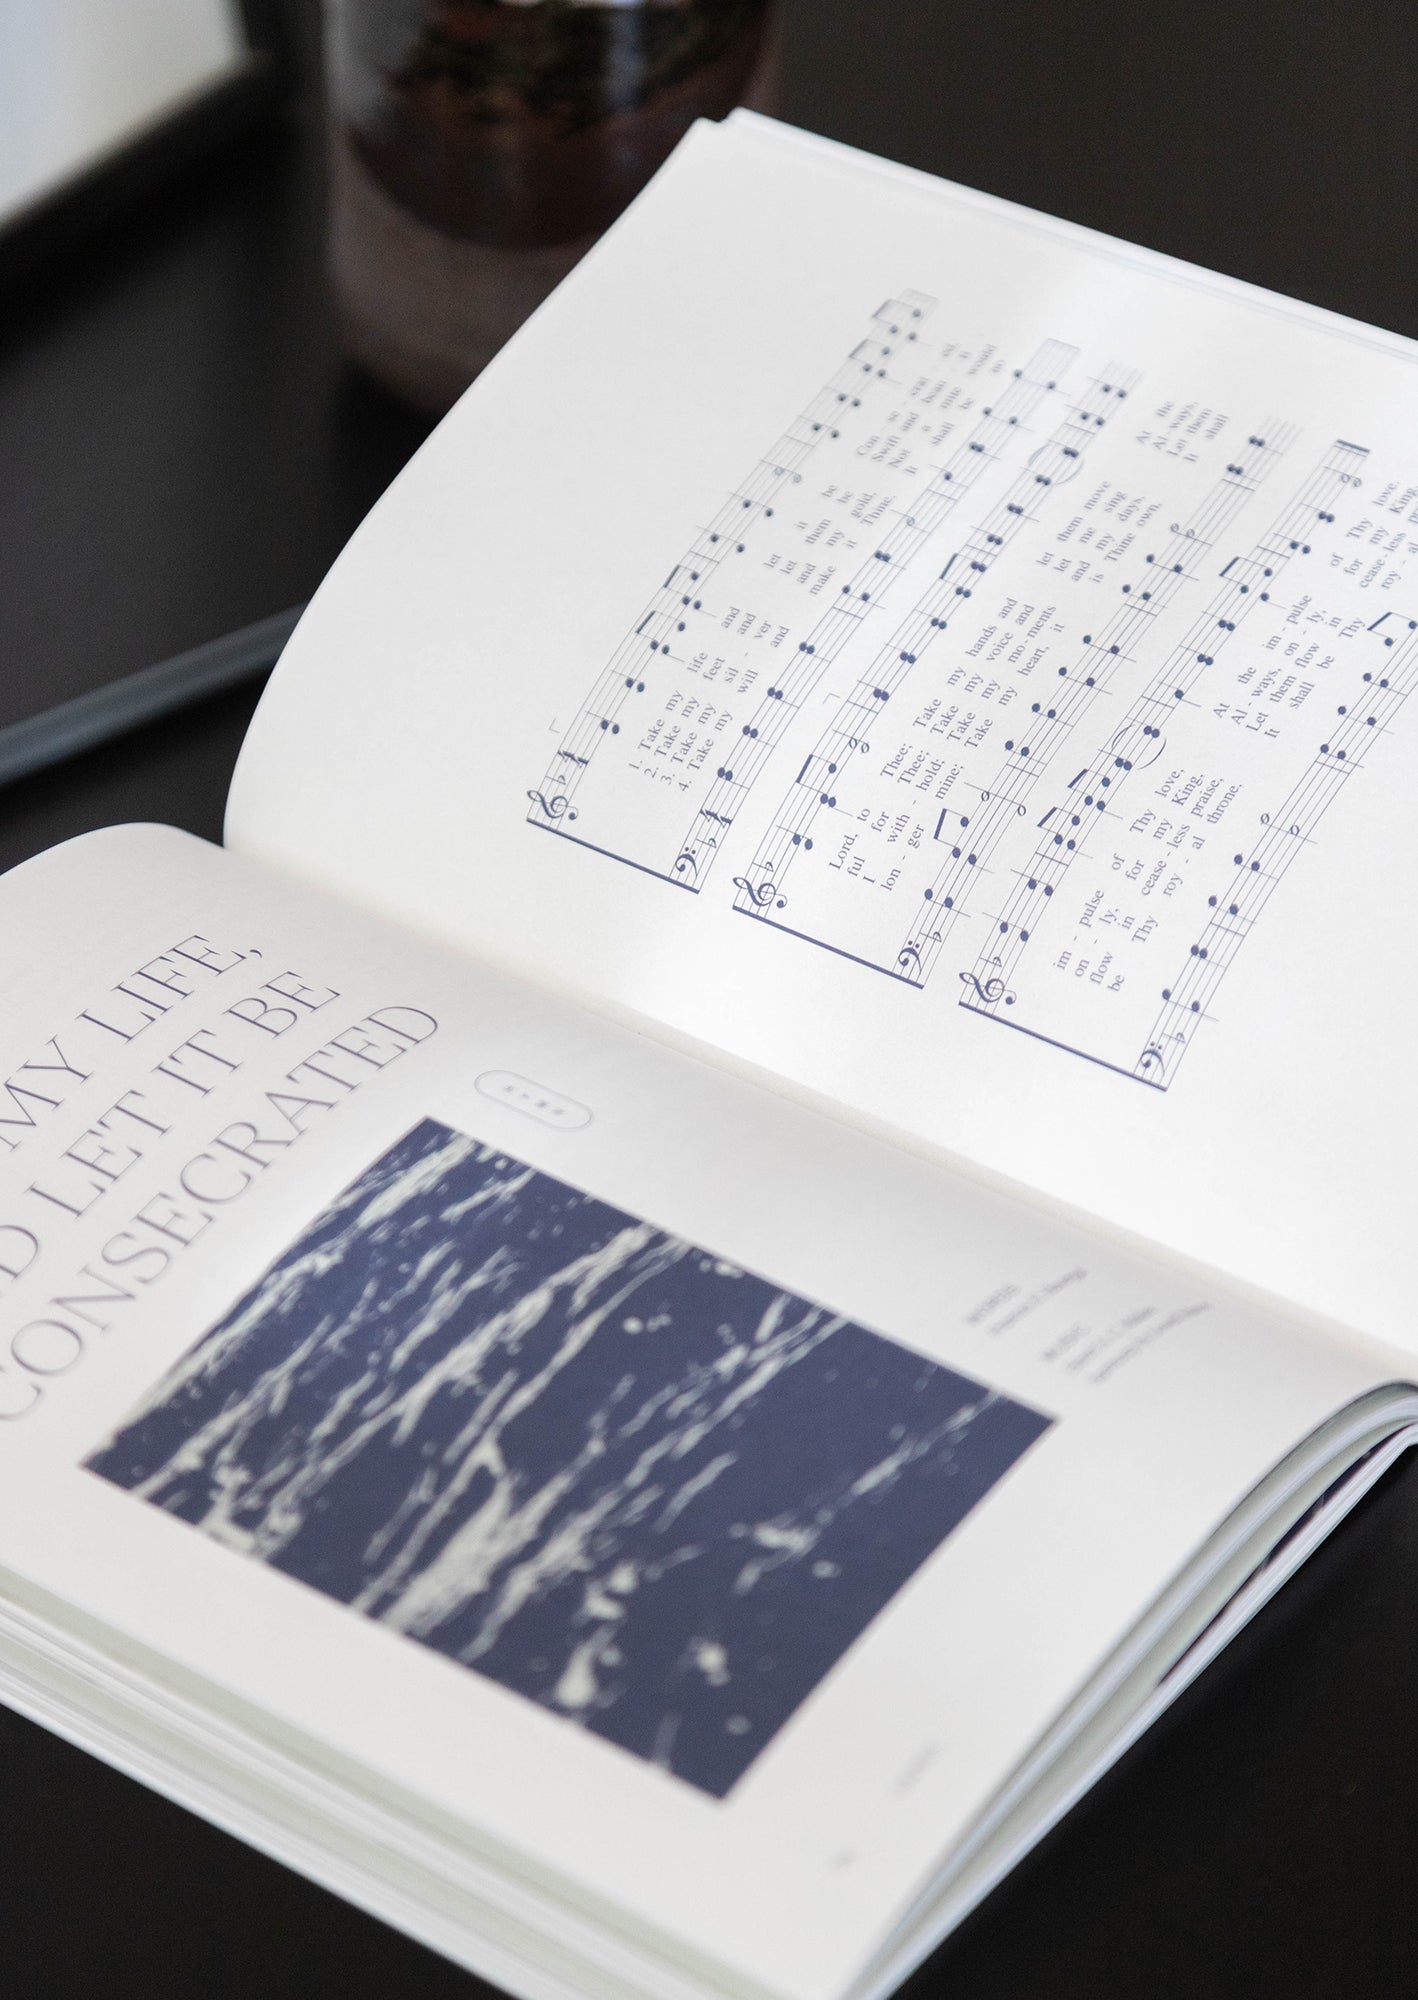 MY LIFE,
D LET IT BE
CONSECRATED
WORDS
MUSIC
1. Take my life and let it be Con - se - crat - ed,
2. Take my feet and let them be Swift and beau - ti
3. Take my sil - ver and my gold, Not a mite would
4. Take my will and make it Thine, It shall be no
Lord, to Thee; Take my hands and let them move At the
ful for Thee; Take my voice and let me sing Al - ways,
I with - hold; Take my mo - ments and my days, Let them
lon - ger mine; Take my heart, it is Thine own. It shall
im - pulse of Thy love, At the im - pulse of Thy love.
on - ly, for my King, Al - ways, on - ly, for my King.
flow in cease - less praise, Let them flow in cease - less
be Thy roy - al throne, It shall be Thy roy - al